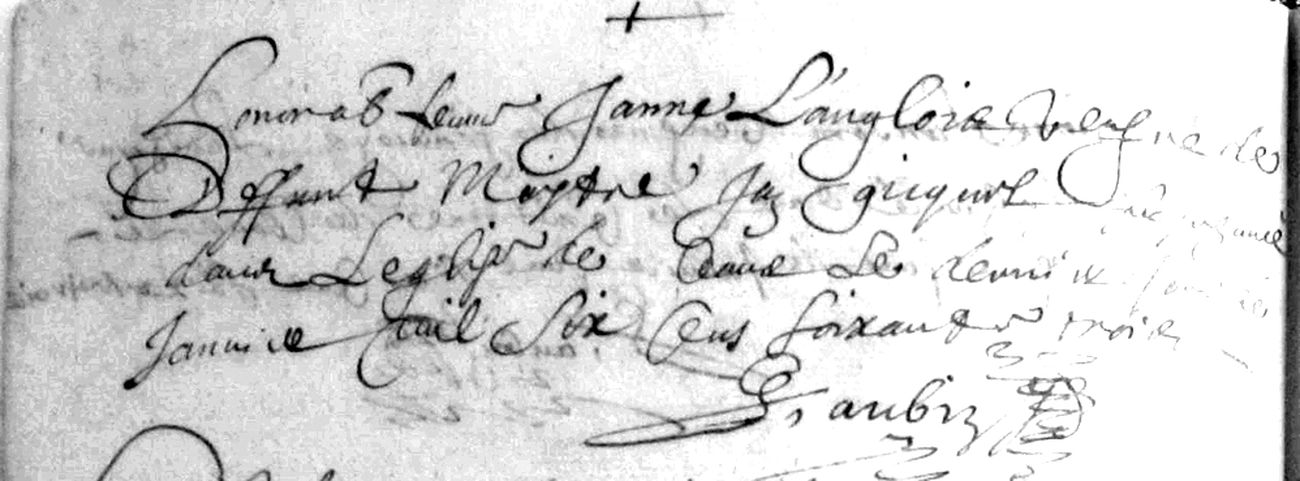 honorab femme Janne Langlois veufve de
Deffunt Maytre Jaq gicquel
dans Leglise de Le dernier
Janvier mil Six Cens soixante trois
Gaubin